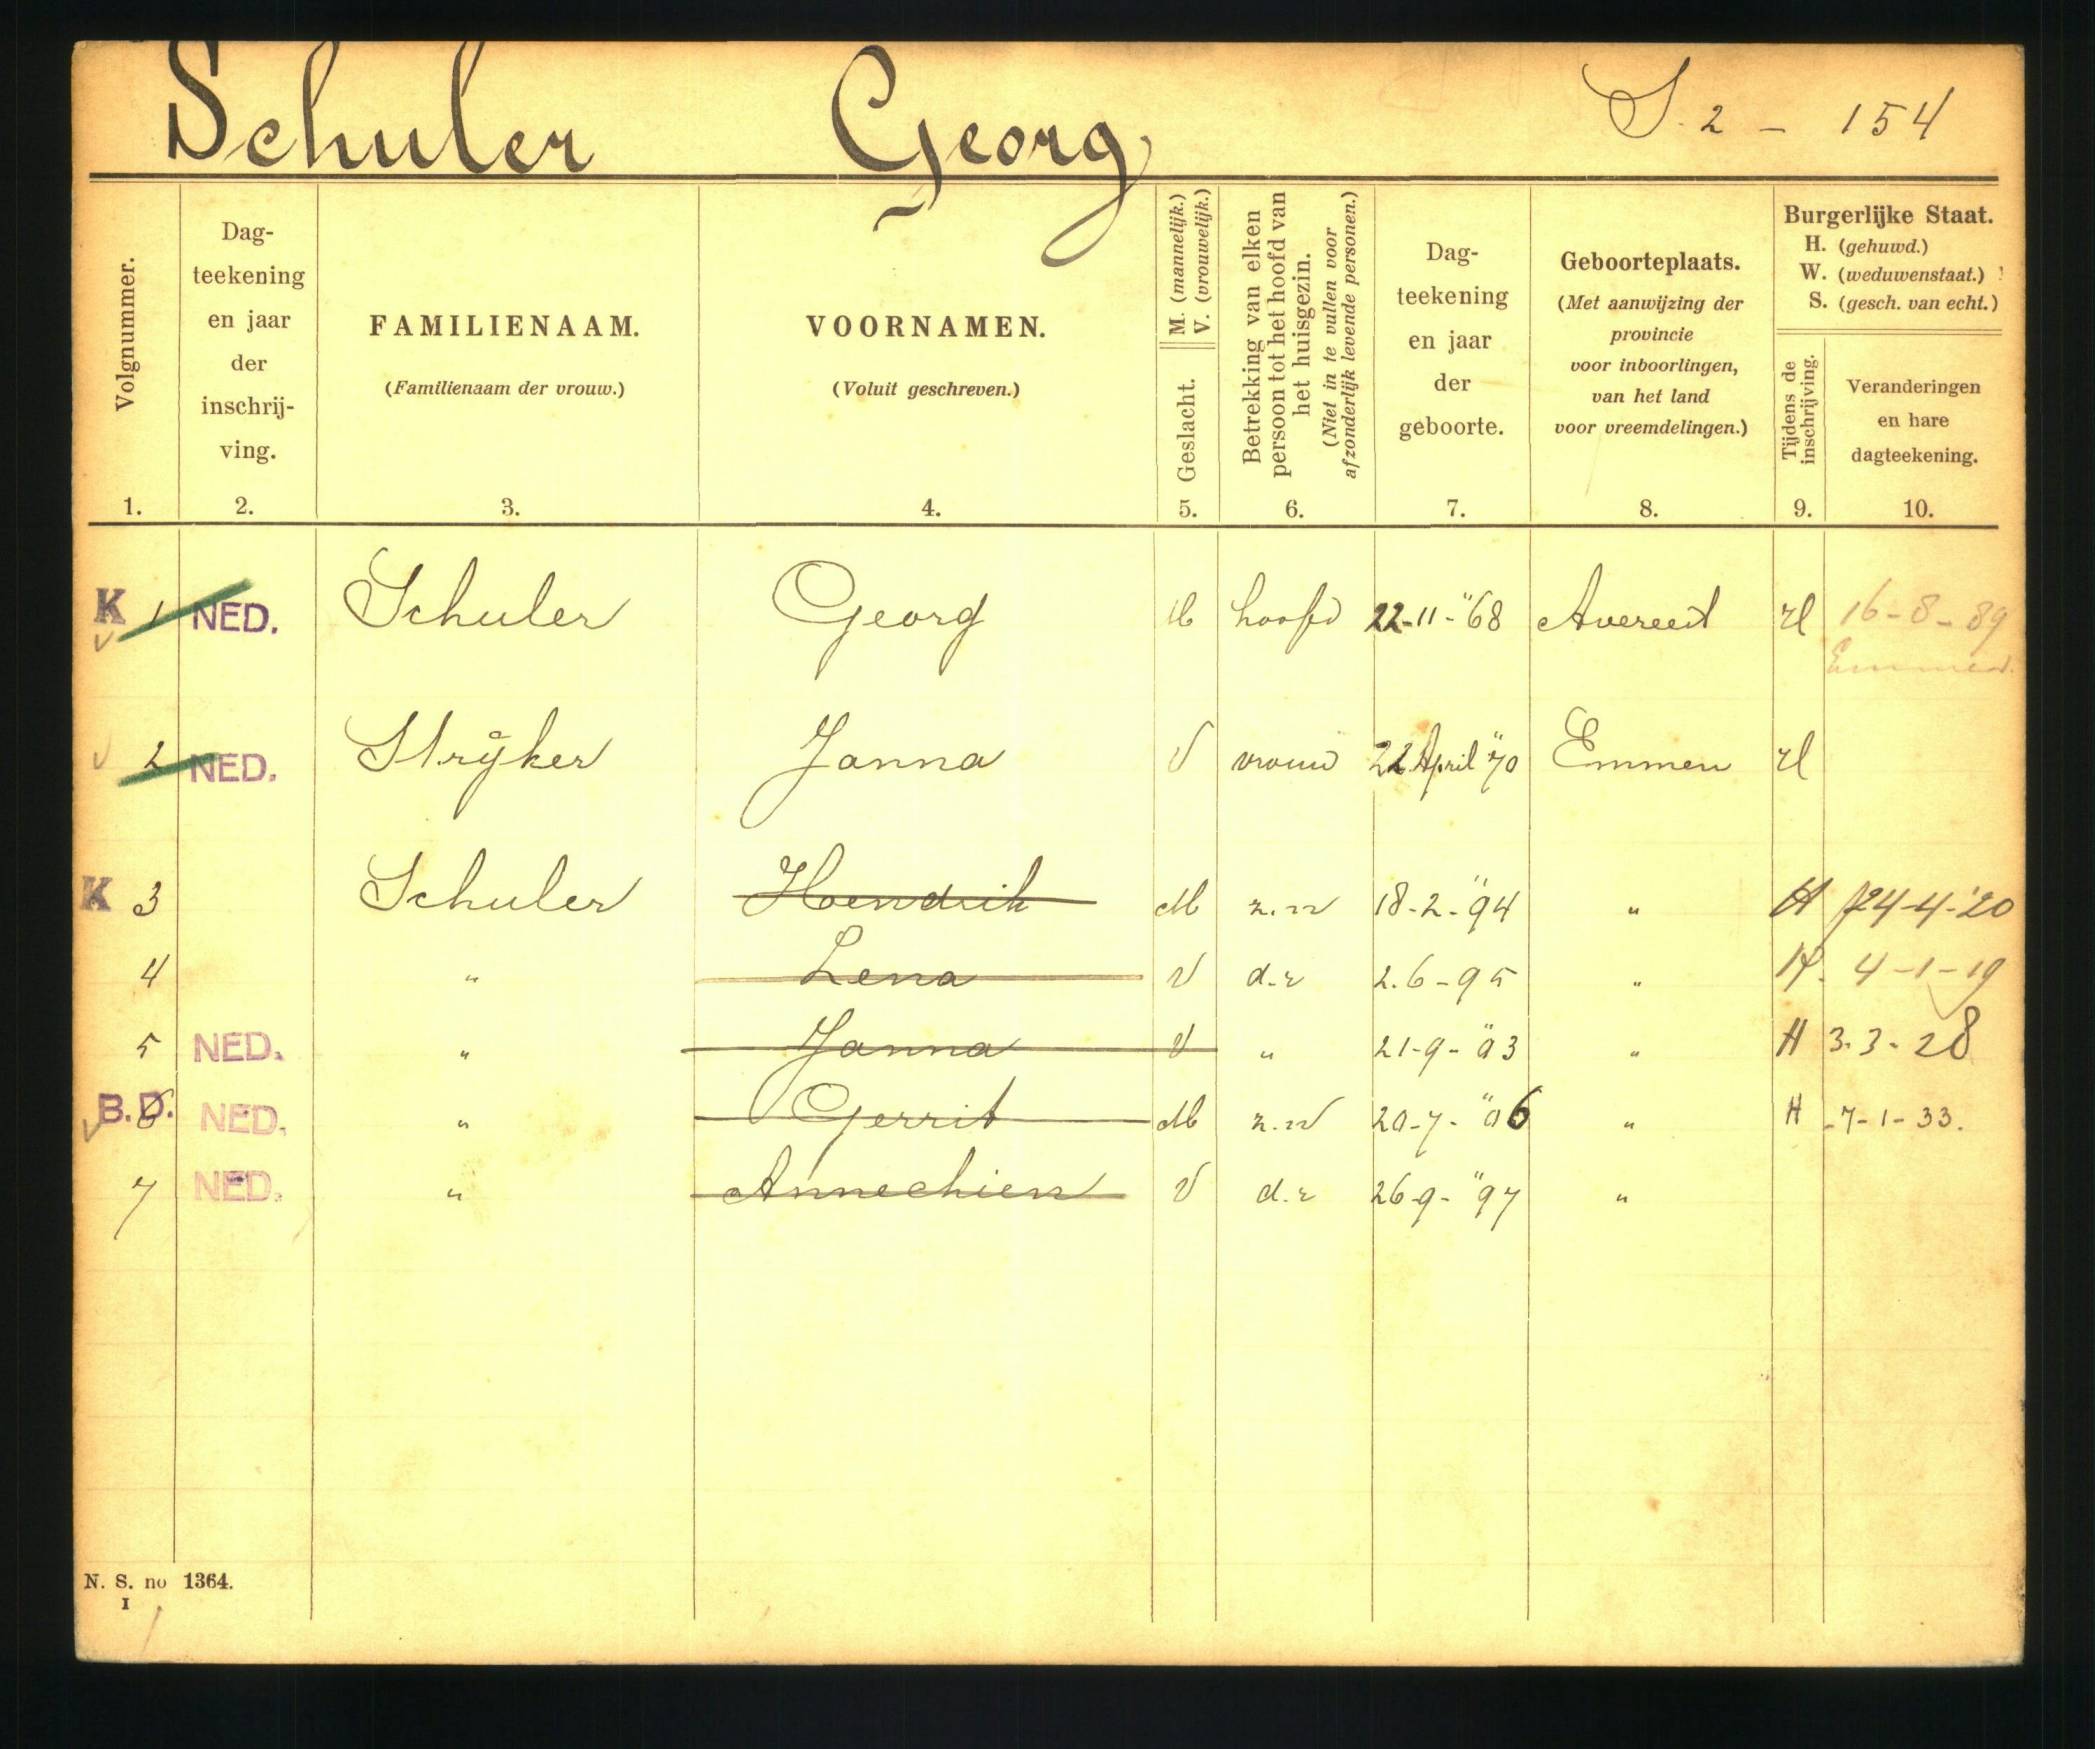 Schuler Georg S. 2 - 154
Volgnummer.
Dag-
teekening
en jaar
der
inschrij-
ving.
FAMILIENAAM.
(Familienaam der vrouw.)
VOORNAMEN.
(Voluit geschreven.)
M. (mannelijk.)
V. (vrouwelijk.)
Geslacht.
Betrekking van elken
persoon tot het hoofd van
het huisgezin.
(Niet in te vullen voor
afzonderlijk levende personen.)
Dag-
teekening
en jaar
der
geboorte.
Geboorteplaats.
(Met aanwijzing der
provincie
voor inboorlingen,
van het land
voor vreemdelingen.)
Burgerlijke Staat.
H. (gehuwd.)
W. (weduwenstaat.)
S. (gesch. van echt.)
Tijdens de
inschrijving.
Veranderingen
en hare
dagteekening.
1. 2. 3. 4. 5. 6. 7. 8. 9. 10.
K 1 NED. Schuler Georg M hoofd 22-11-"68 Avereest H 16-8-89
Emmen
2 NED. Strijker Janna V vrouw 22 April "70 Emmen H
K 3 Schuler Hendrik M z.n 18-2-"94 " H 24-4-'20
4 " Lena V d.r 2.6-95 " H. 4-1-19
5 NED. " Janna V " 21-9-"03 " H 3.3.28
B.D. 6 NED. " Gerrit M z.n 20-7-"06 " H -7-1-33.
7 NED. " Annechien V d.r 26-9-"97 "
N. S. no 1364.
I